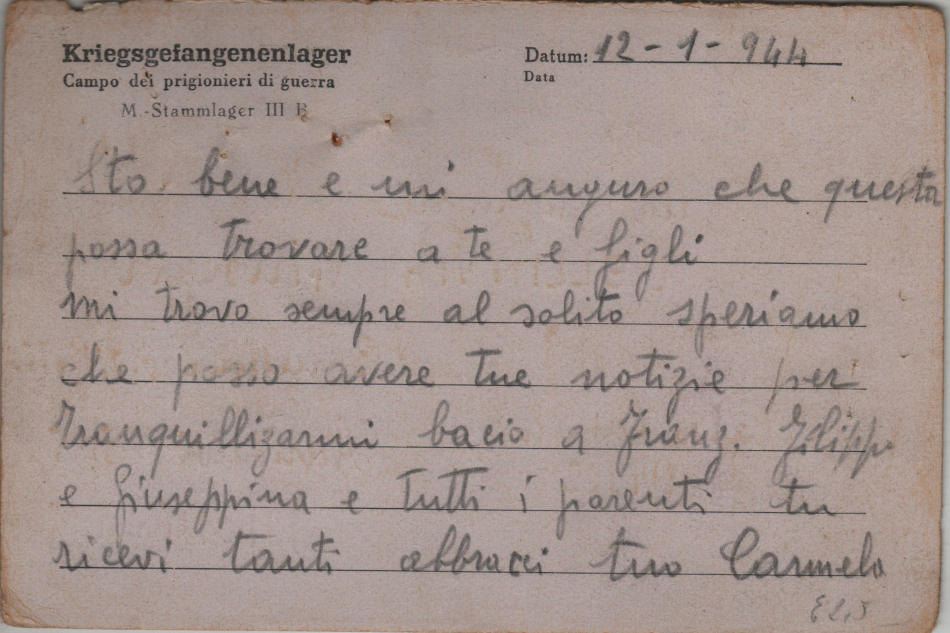 Kriegsgefangenenlager
Campo dei prigionieri di guerra
M.-Stammlager III B
Datum: 12 - 1 - 944
Data
Sto bene e mi auguro che questa
possa trovare a te e figli
mi trovo sempre al solito speriamo
che posso avere tue notizie per
tranquillizarmi bacio a Franz. Filippo
e Giuseppina e tutti i parenti tu
ricevi tanti abbracci tuo Carmelo